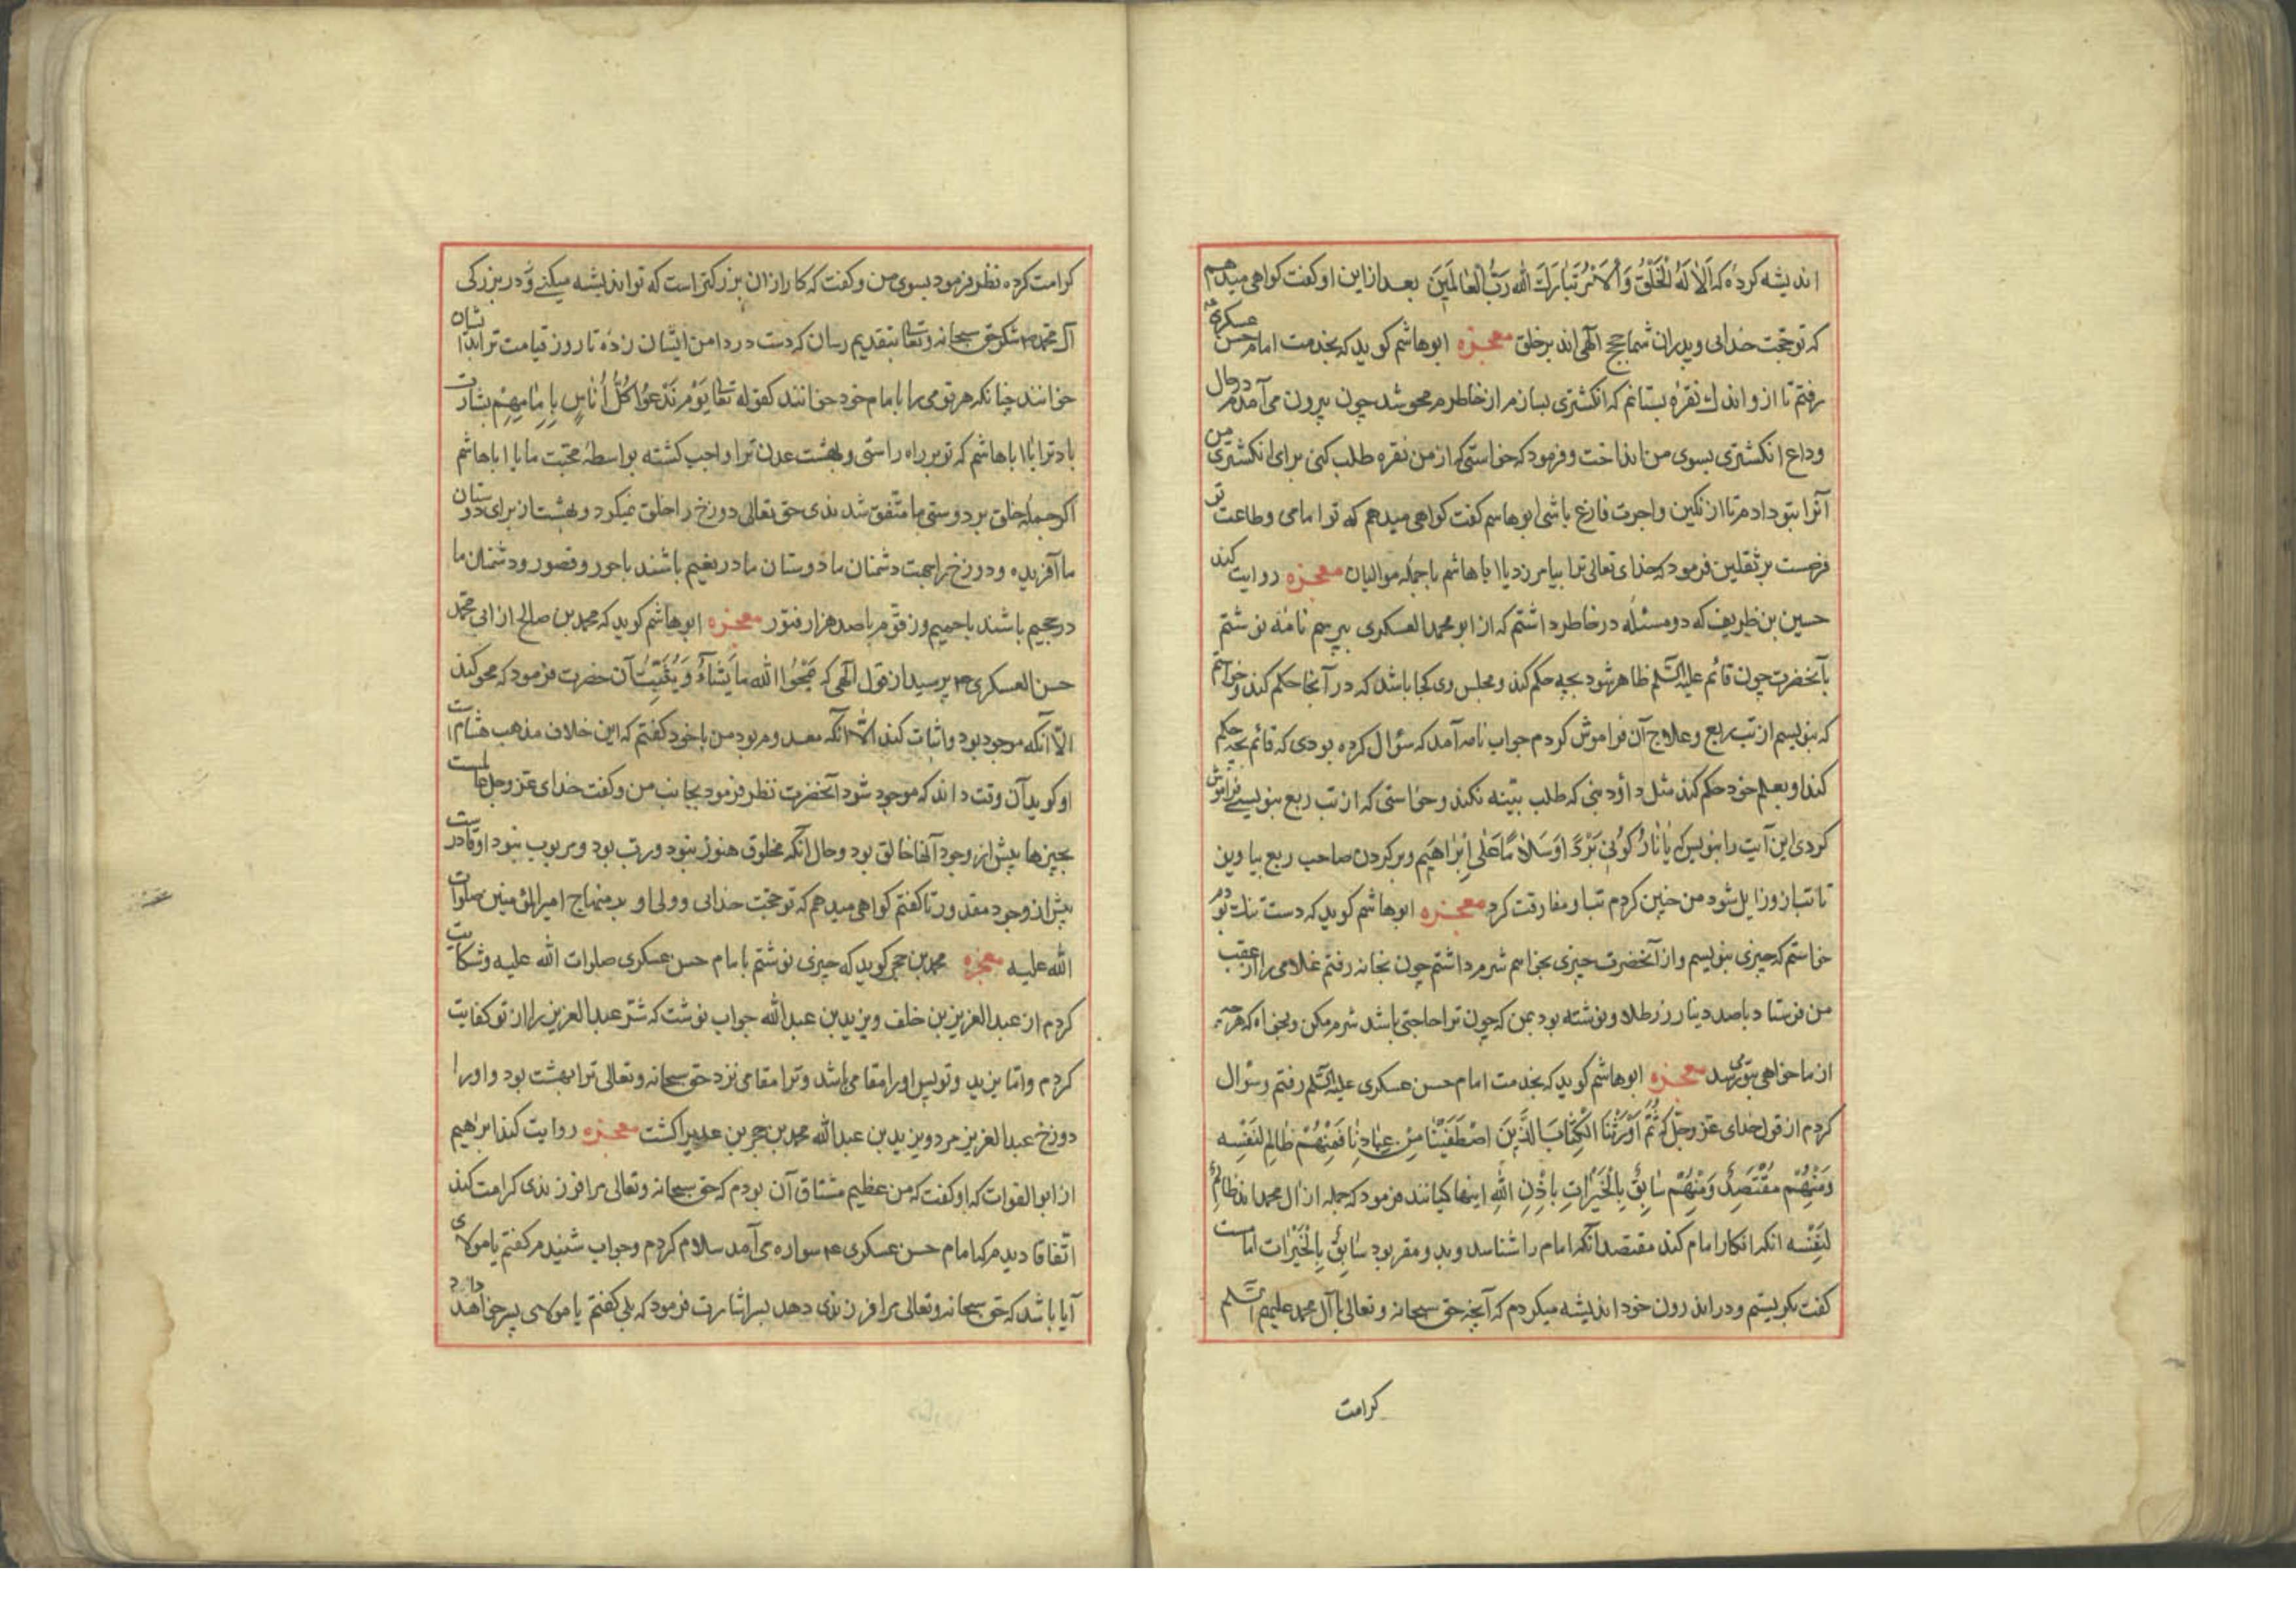 اندیشه کرده که اَلا لَهُ الْخَلْقُ وَالاَمْرُ تَبارَكَ الله رَبُّ الْعالَمینَ بعد ازاین او کفت کواهی میدهم
که تو حجّت خدائی و پدران شما حجج الهی اند بر خلق معجزه ابوهاشم کوید که بخدمت امام حسن عسکری ع
رفتم تا از و اندك نقره بستانم که انکشتری بسازم از خاطرم محو شد چون بیرون می آمدم در حال
وداع انکشتری بسوی من انداخت و فرمود که خواستی که از من نقره طلب کنی برای انکشتری من
آنرا بتو دادم تا از نکین و اجرت فارغ باشی ابوهاشم کفت کواهی میدهم که تو امامی و طاعت تو
فرضست بر ثقلین فرمود که خدای تعالی ترا بیامرزد یا ابا هاشم با جمله موالیان معجزه روایت کند
حسین بن ظریف که دو مسئله در خاطر داشتم که از ابو محمد العسکری بپرسم نامه نوشتم
بآنحضرت چون قائم علیه السّلم ظاهر شود بچه حکم کند و مجلس وی کجا باشد که در آنجا حکم کند و خواستم
که بنویسم از تب ربع و علاج آن فراموش کردم جواب نامه آمد که سؤال کرده بودی که قائم بچه حکم
کند او بعلم خود حکم کند مثل داؤد نبی که طلب بیّنه نکند و خواستی که از تب ربع بنویسی فراموش
کردی این آیت را بنویس که یا نارُ کُونی بَرْدًا وَسَلامًا عَلی اِبْراهیم و بر کردن صاحب ربع بیاویز
تا تب از و زایل شود من چنین کردم تب از و مفارقت کرد معجزه ابوهاشم کوید که دست تنك بودم
خواستم که چیزی بنویسم و از آنحضرت چیزی بخواهم شرم داشتم چون بخانه رفتم غلامی را از عقب
من فرستاد با صد دینار زر طلا و نوشته بود بمن که چون ترا حاجتی باشد شرم مکن و بخواه که هرچه
از ما خواهی بتو می رسد معجزه ابوهاشم کوید که بخدمت امام حسن عسکری علیه السّلم رفتم و سؤال
کردم از قول خدای عزّ وجلّ که ثُمَّ اَوْرَثْنَا الْکِتابَ الَّذینَ اصْطَفَیْنا مِنْ عِبادِنا فَمِنْهُمْ ظالِم لِنَفْسِه
وَمِنْهُمْ مُقْتَصِدٌ وَمِنْهُمْ سابِقٌ بِالْخَیْراتِ بِاِذْنِ اللهِ اینها کیانند فرمود که جمله از آل محمد اند ظالمٌ
لِنَفْسِه آنکه انکار امام کند مقتصد آنکه امام را شناسد و بد و مقر بود سابِقٌ بِالْخَیْرات امامست
کفت بکریستم و در اندرون خود اندیشه میکردم که آنچه حق سبحانه و تعالی با آل محمد علیهم السّلم
کرامت
کرامت کرده نظر فرمود بسوی من و کفت که کار ازان بزرکتر است که تو اندیشه میکنی و در بزرکی
آل محمد ص شکر حق سبحانه و تعا بتقدیم رسان که دست در دامن ایشان زده تا روز قیامت ترا بدیشان
خوانند چنانکه هر قومی را بامام خود خوانند کقوله تعا یَوْمَ نَدْعُوا کُلَّ اُناسٍ بِاِمامِهِمْ بشارت
باد ترا یا ابا هاشم که تو بر راه راستی و بهشت عدن ترا واجب کشته بواسطهٔ محبّت ما یا ابا هاشم
اکر جمله خلق بر دوستی ما متّفق شدندی حق تعالی دوزخ را خلق نمیکرد و بهشت از برای دوستان
ما آفریده و دوزخ را بجهت دشمنان ما دوستان ما در نعیم باشند با حور و قصور و دشمنان ما
در جحیم باشند با حمیم و زقّوم با صد هزار فتور معجزه ابوهاشم کوید که محمد بن صالح از ابی محمّد
حسن العسکری ع پرسید از قول الهی که یَمْحُوا الله ما یَشاءُ وَیُثْبِتُ آن حضرت فرمود که محو کند
الاّ آنکه موجود بود و اثبات کند الاّ آنکه معدوم بود من با خود کفتم که این خلاف مذهب هشام است
او کوید آن وقت داند که موجود شود آنحضرت نظر فرمود بجانب من و کفت خدای عزّ وجل عالمست
بچیزها پیش از وجود آنها خالق بود و حال آنکه مخلوق هنوز نبود و رب بود و مربوب نبود او قادرست
پیش از وجود مقدور تا کفتم کواهی میدهم که تو حجّت خدائی و ولی او بر منهاج امیر المؤمنین صلوات
الله علیه معجزه محمد بن حجر کوید که چیزی نوشتم بامام حسن عسکری صلوات الله علیه و شکایت
کردم از عبد العزیز بن خلف و یزید بن عبد الله جواب نوشت که شرّ عبد العزیز را از تو کفایت
کردم و امّا یزید و تو پس او را مقامی باشد و ترا مقامی نزد حق سبحانه و تعالی ترا بهشت بود و او را
دوزخ عبد العزیز مرد و یزید بن عبد الله محمد بن حجر بن را کشت معجزه روایت کند ابراهیم
از ابو الفوات که او کفت که من عظیم مشتاق آن بودم که حق سبحانه و تعالی مرا فرزندی کرامت کند
اتّفاقا دیدم که امام حسن عسکری ع سواره می آمد سلام کردم و جواب شنیدم کفتم یا مولای
آیا باشد که حق سبحانه و تعالی مرا فرزندی دهد بسر اشارت فرمود که بلی کفتم یا مولای پسر خواهد داد